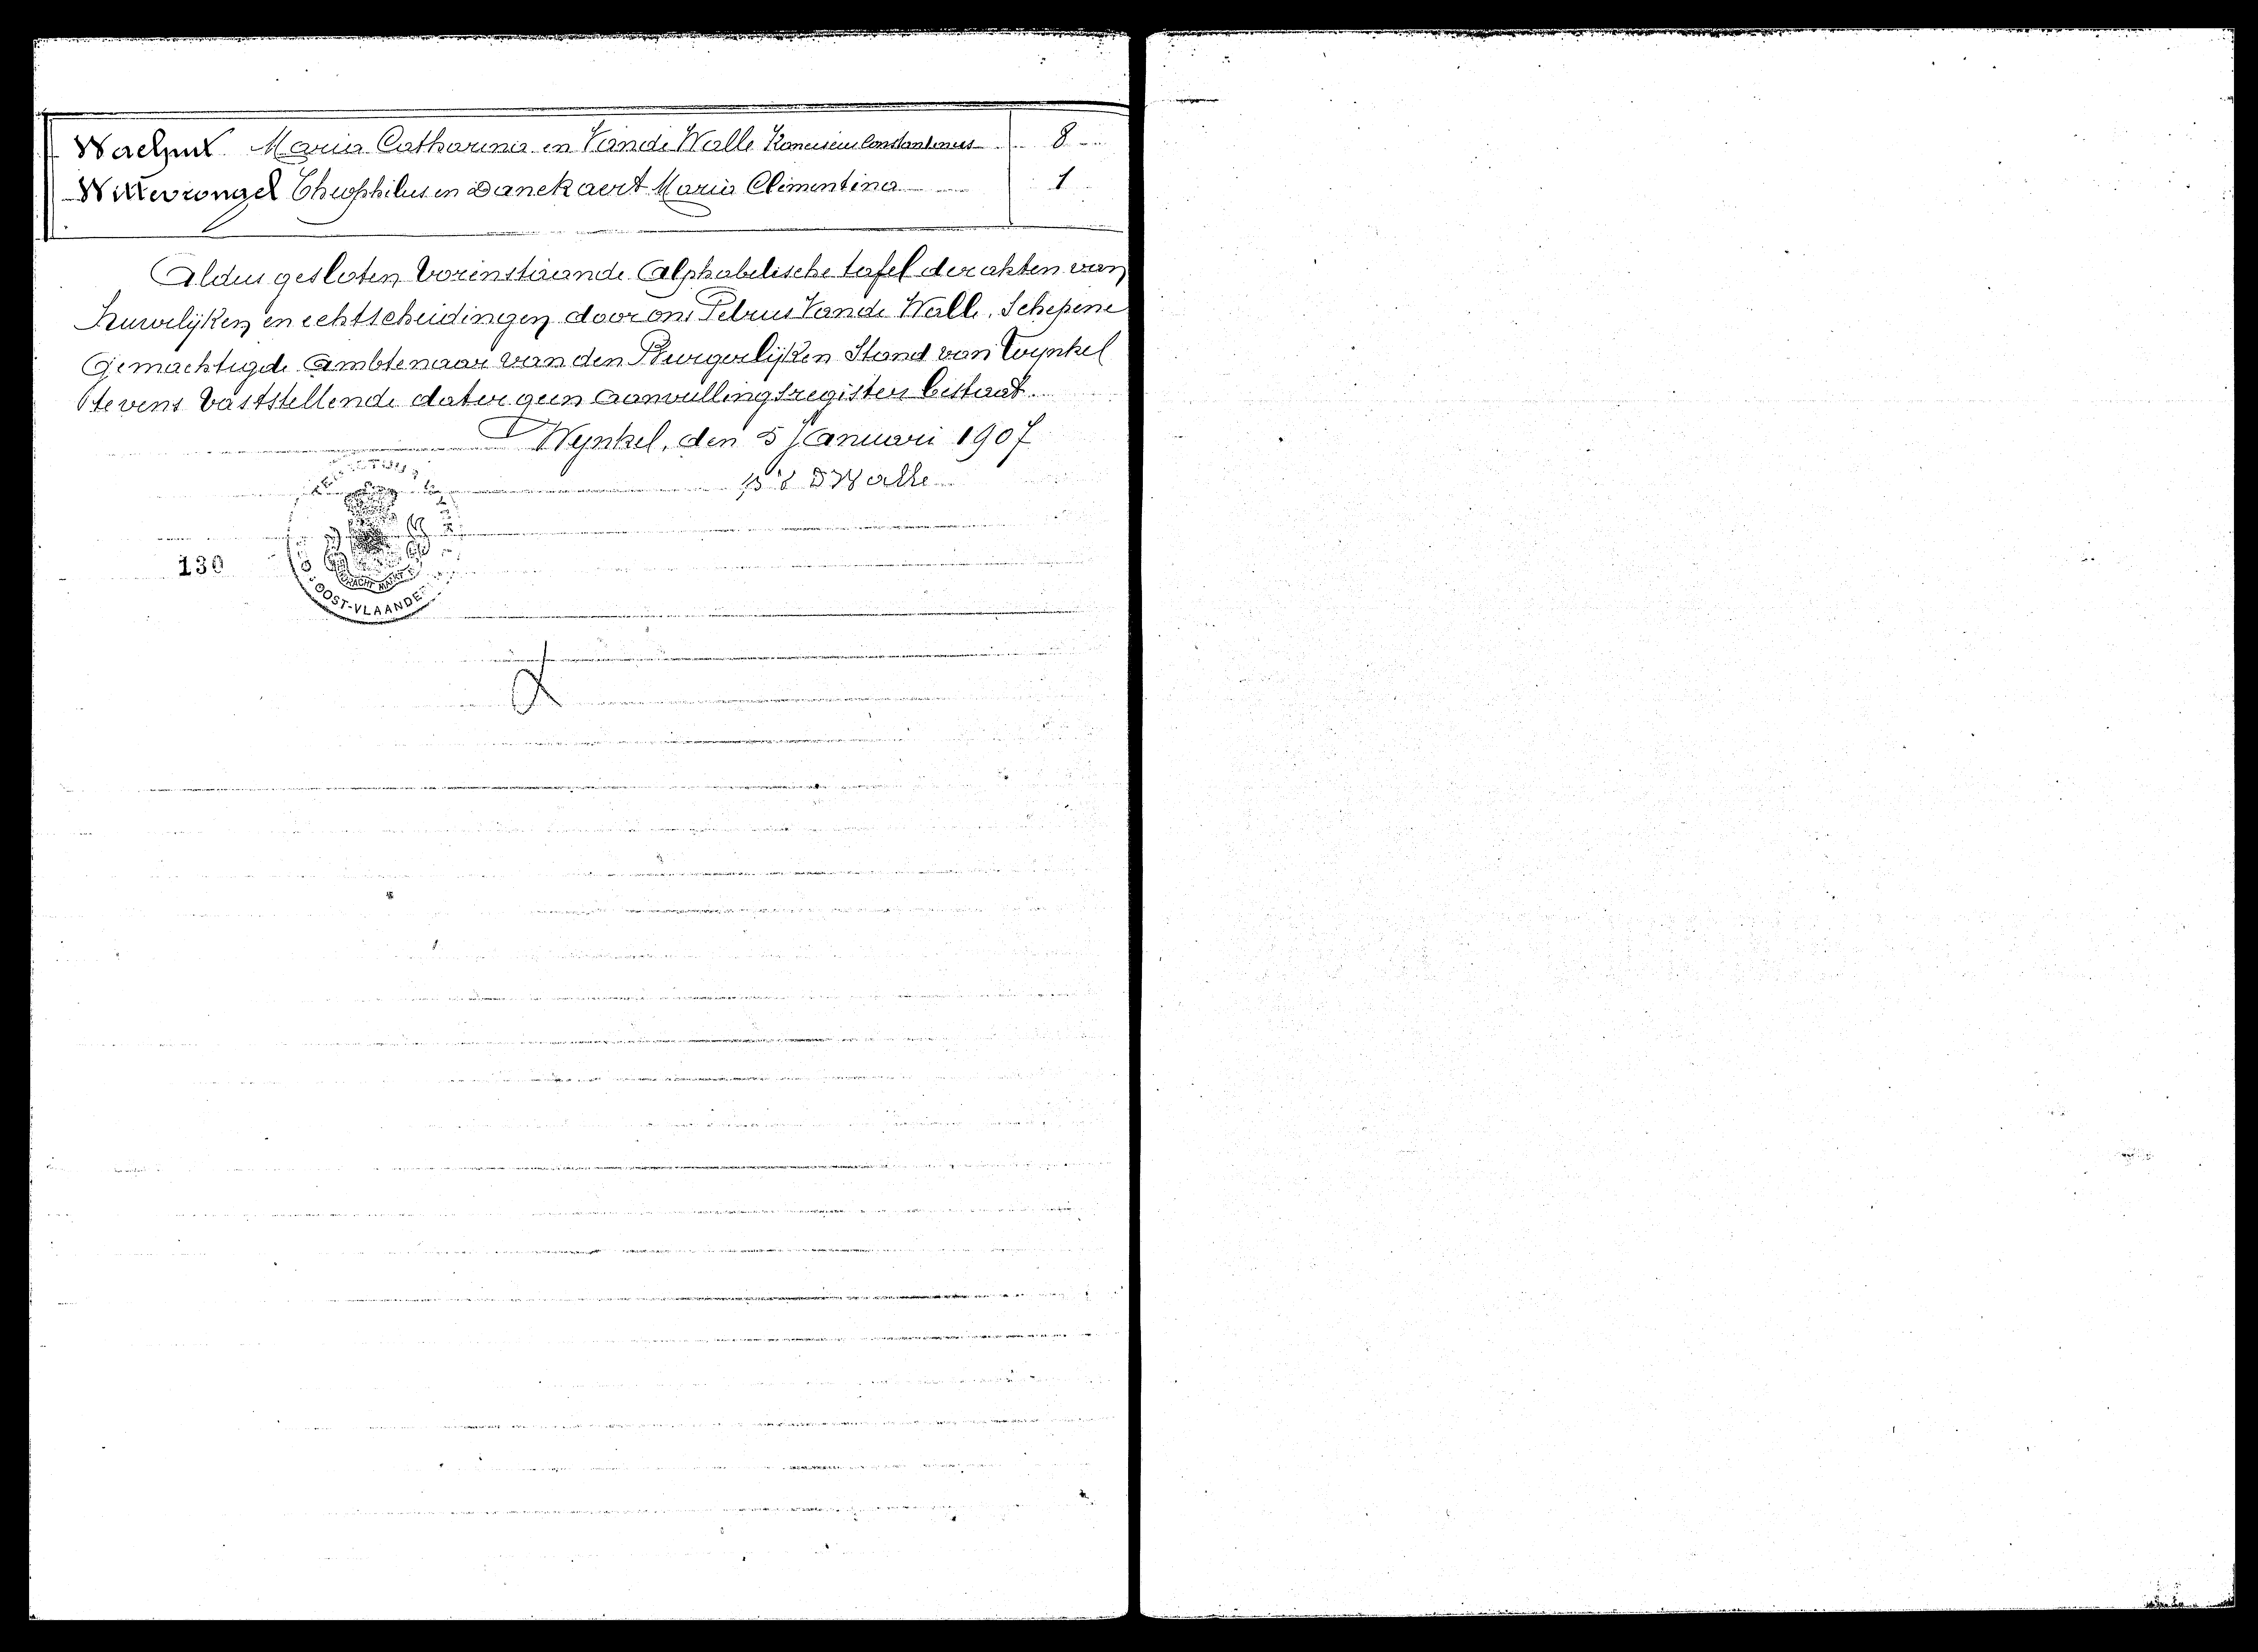 Waelput Maria Catharina en Van de Walle Franciscus Constantinus 8
Wittevrongel Theophilus en Danekaert Maria Clementina 1
Aldus gesloten vorenstaande Alphabetische tafel der akten van
huwelijken en echtscheidingen door ons Petrus Van de Walle, Schepene
Gemachtigde Ambtenaar van den Burgerlijken Stand van Wynkel
tevens vaststellende dat er geen aanvullingsregister bestaat.
Wynkel, den 5 Januari 1907
DWalle
130
OOST-VLAANDE